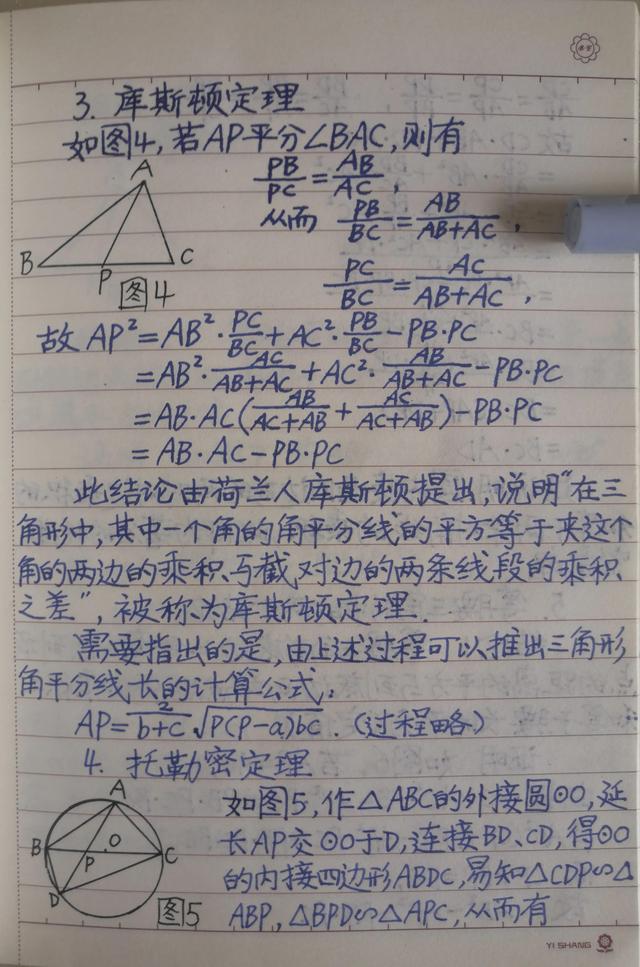 3. 库斯顿定理
如图4,若AP平分∠BAC,则有
PB/PC=AB/AC,
从而 PB/BC=AB/AB+AC,
PC/BC=AC/AB+AC,
A
B
P
C
图4
故AP²=AB²·PC/BC+AC²·PB/BC-PB·PC
=AB²·AC/AB+AC+AC²·AB/AB+AC-PB·PC
=AB·AC(AB/AC+AB+AC/AC+AB)-PB·PC
=AB·AC-PB·PC
此结论由荷兰人库斯顿提出,说明“在三
角形中,其中一个角的角平分线的平方等于夹这个
角的两边的乘积与截对边的两条线段的乘积
之差”,被称为库斯顿定理.
需要指出的是,由上述过程可以推出三角形
角平分线长的计算公式:
AP=2/b+c√P(P-a)bc.(过程略)
4. 托勒密定理
如图5,作△ABC的外接圆⊙O,延
长AP交⊙O于D,连接BD、CD,得⊙O
的内接四边形ABDC,易知△CDP∽△
ABP,△BPD∽△APC,从而有
A
B
O
P
C
D
图5
YI SHANG